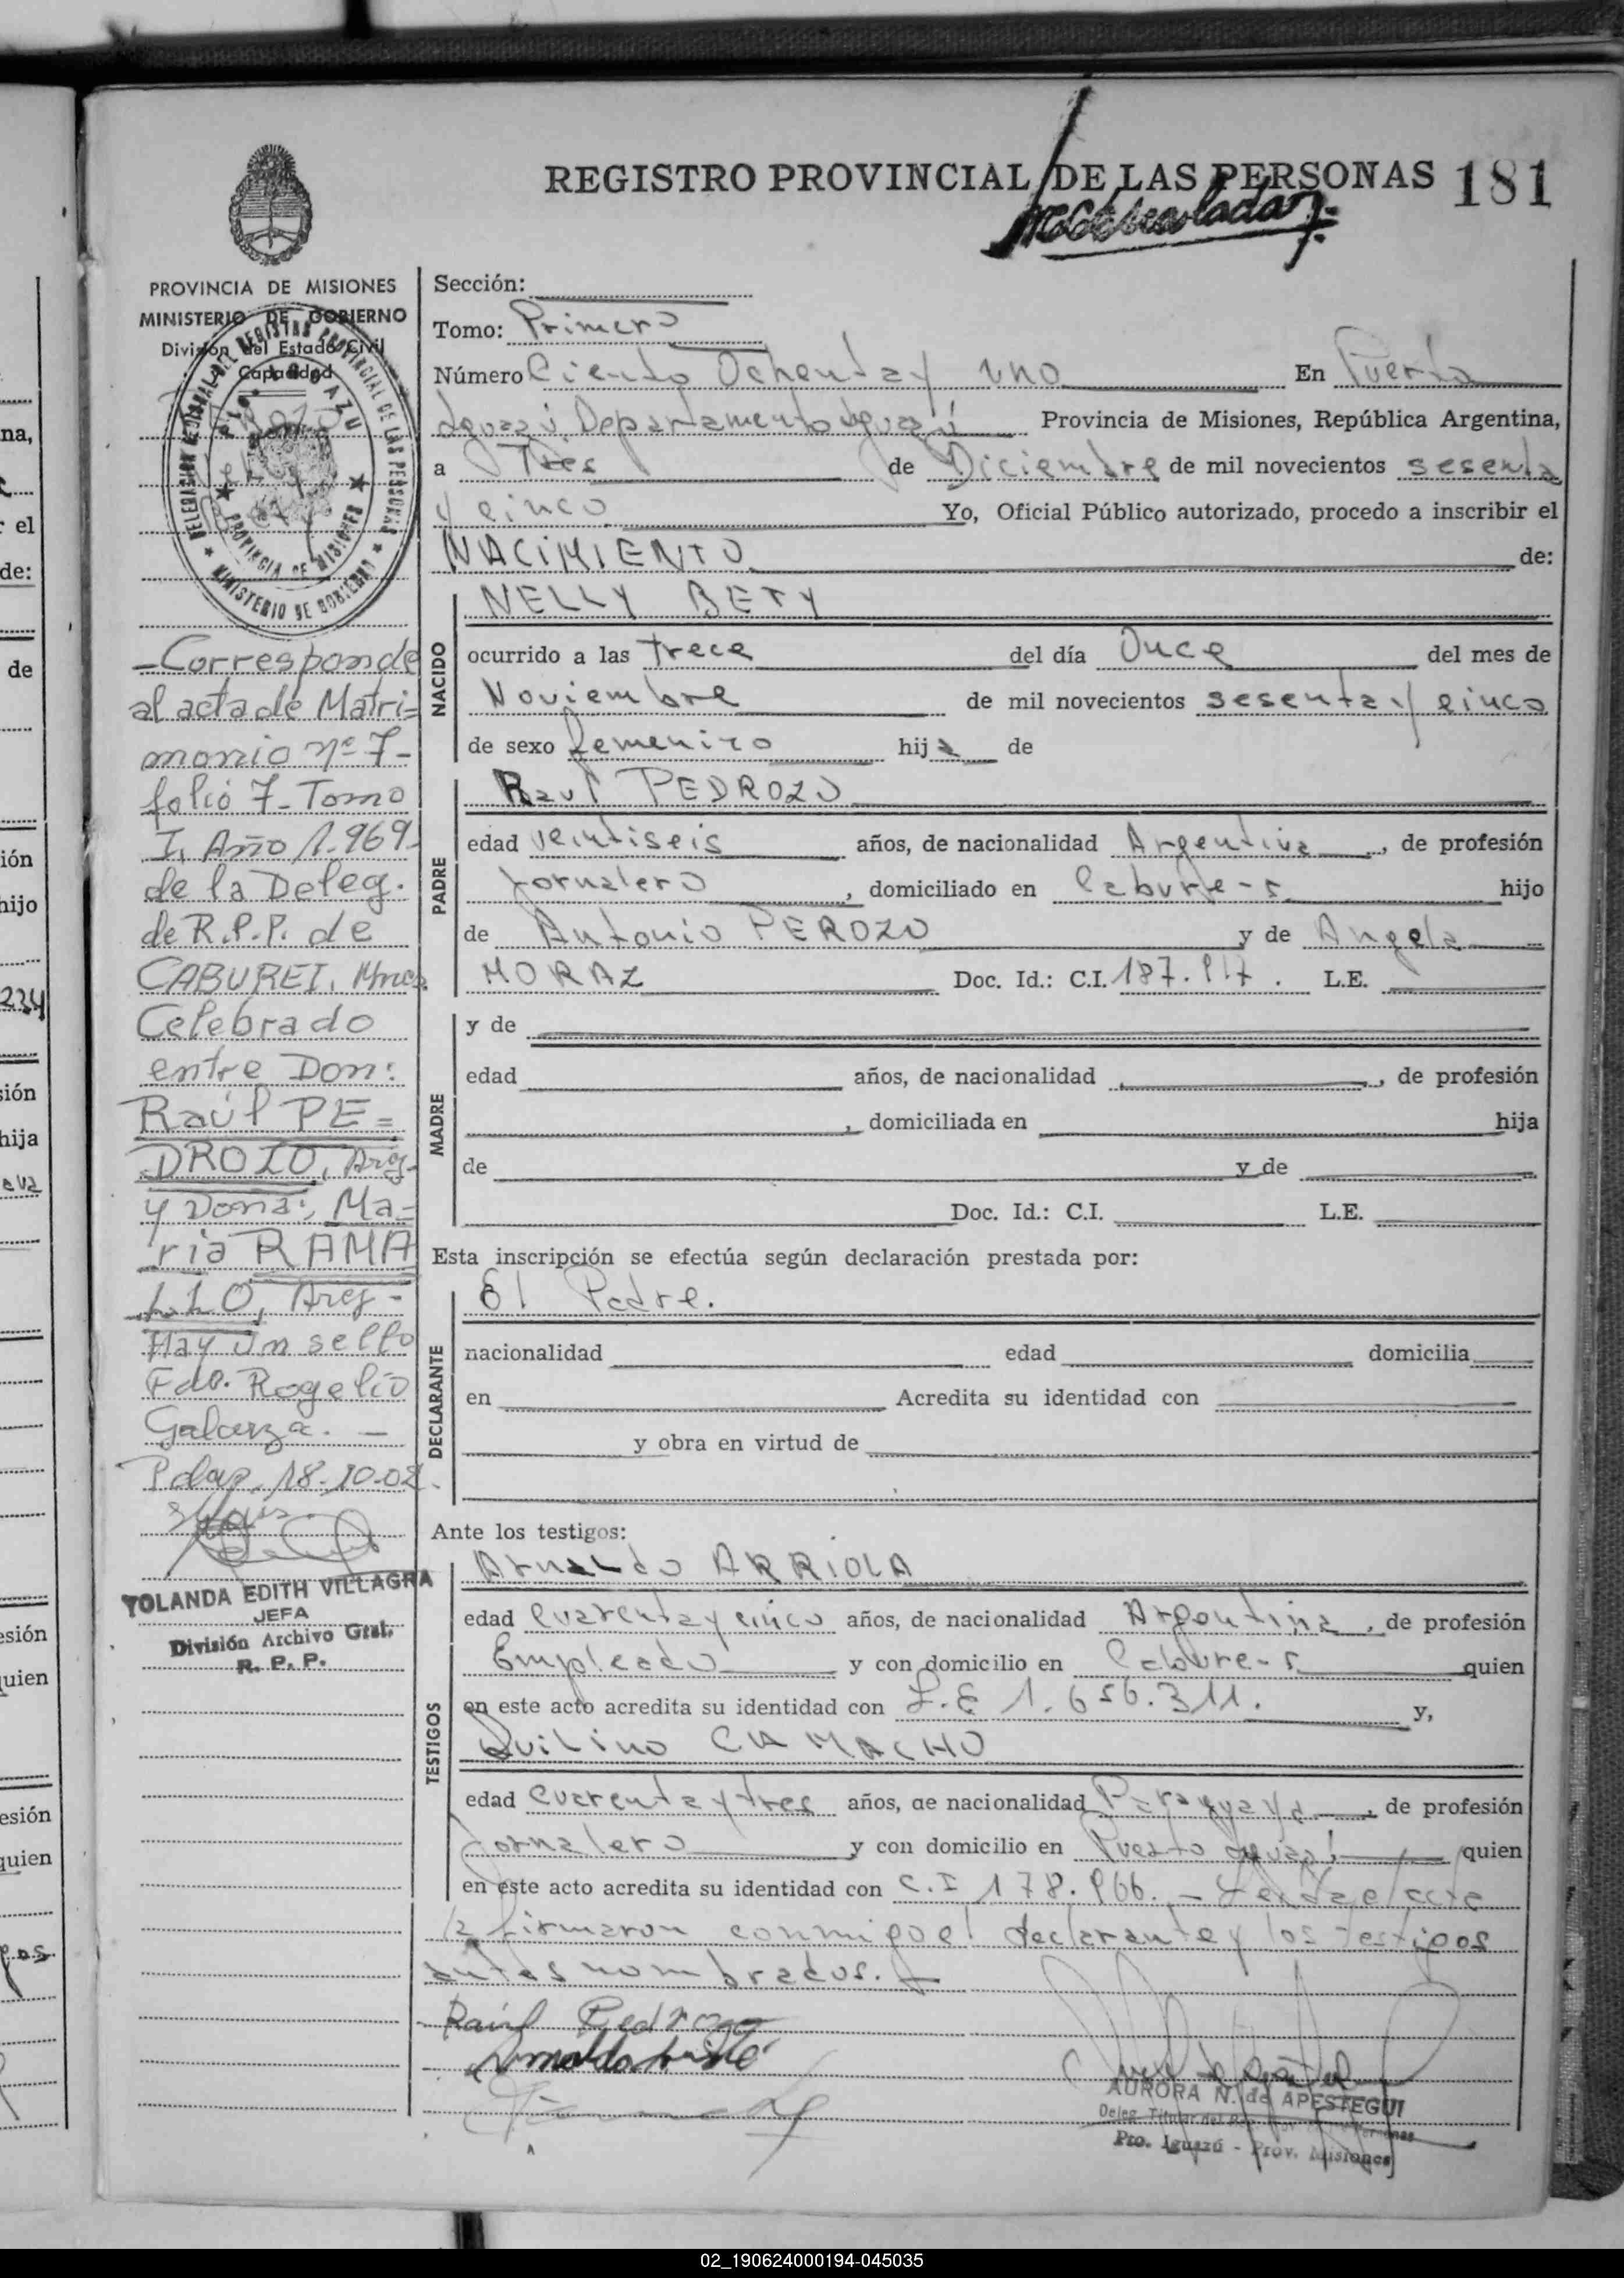 REGISTRO PROVINCIAL DE LAS PERSONAS 181
PROVINCIA DE MISIONES
MINISTERIO DE GOBIERNO
División del Estado Civil
Capacidad
DELEGACION REGISTRO PROVINCIAL DE LAS PERSONAS
PTO. IGUAZU
PROVINCIA DE MISIONES
MINISTERIO DE GOBIERNO
Sección:
Tomo: Primero
Número Ciento Ochenta y uno En Puerto
Iguazú Departamento Iguazú Provincia de Misiones, República Argentina,
a Tres de Diciembre de mil novecientos sesenta
y cinco Yo, Oficial Público autorizado, procedo a inscribir el
NACIMIENTO de:
NACIDO
NELLY BETY
ocurrido a las trece del día Once del mes de
Noviembre de mil novecientos sesenta y cinco
de sexo femenino hija de
PADRE
Raul PEDROZO
edad veintiseis años, de nacionalidad Argentina, de profesión
Jornalero, domiciliado en Cabure-i hijo
de Antonio PEROZO y de Angela
MORAZ Doc. Id.: C.I. 187.917. L.E.
MADRE
y de
edad años, de nacionalidad , de profesión
, domiciliada en hija
de y de
Doc. Id.: C.I. L.E.
Esta inscripción se efectúa según declaración prestada por:
DECLARANTE
El Padre.
nacionalidad edad domicilia
en Acredita su identidad con
y obra en virtud de
Ante los testigos:
TESTIGOS
Arnaldo ARRIOLA
edad cuarenta y cinco años, de nacionalidad Argentina, de profesión
Empleado y con domicilio en Cabure-i quien
en este acto acredita su identidad con L.E 1.656.311. y,
Quilino CAMACHO
edad cuarenta y tres años, de nacionalidad Paraguaya, de profesión
Jornalero y con domicilio en Puerto Iguazú quien
en este acto acredita su identidad con C.I 178.966. - Leida el acta
la firmaron conmigo el declarante y los testigos
antes nombrados.
Raúl Pedrozo
AURORA N. de APESTEGUI
Pto. Iguazú - Prov. Misiones
-Corresponde
al acta de Matri=
monio nº 7-
folio 7- Tomo
I, Año 1.969-
de la Deleg.
de R.P.P. de
CABUREI, Mnes.
Celebrado
entre Don:
Raúl PE=
DROZO, Arg-
y Dona: Ma=
ria RAMA
LLO, Arg-
Hay un sello
Fdo. Rogelio
Galarza. -
Pdas, 18-10-02.
YOLANDA EDITH VILLAGRA
JEFA
División Archivo Gral.
R. P. P.
na,
el
de:
de
ión
hijo
234
sión
hija
esión
quien
esión
quien
02_190624000194-045035